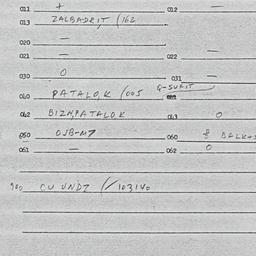 011 + 012 —
013 ZALBADRIT /162
020 —
021 — 022 —
030 0 031 —
040 PATALOK /005 G-SUKIT
042 BIZKPATALOK 043 0
050 OJB-M7 060 BALK
061 — 062 0
900 CU UNDZ /103140